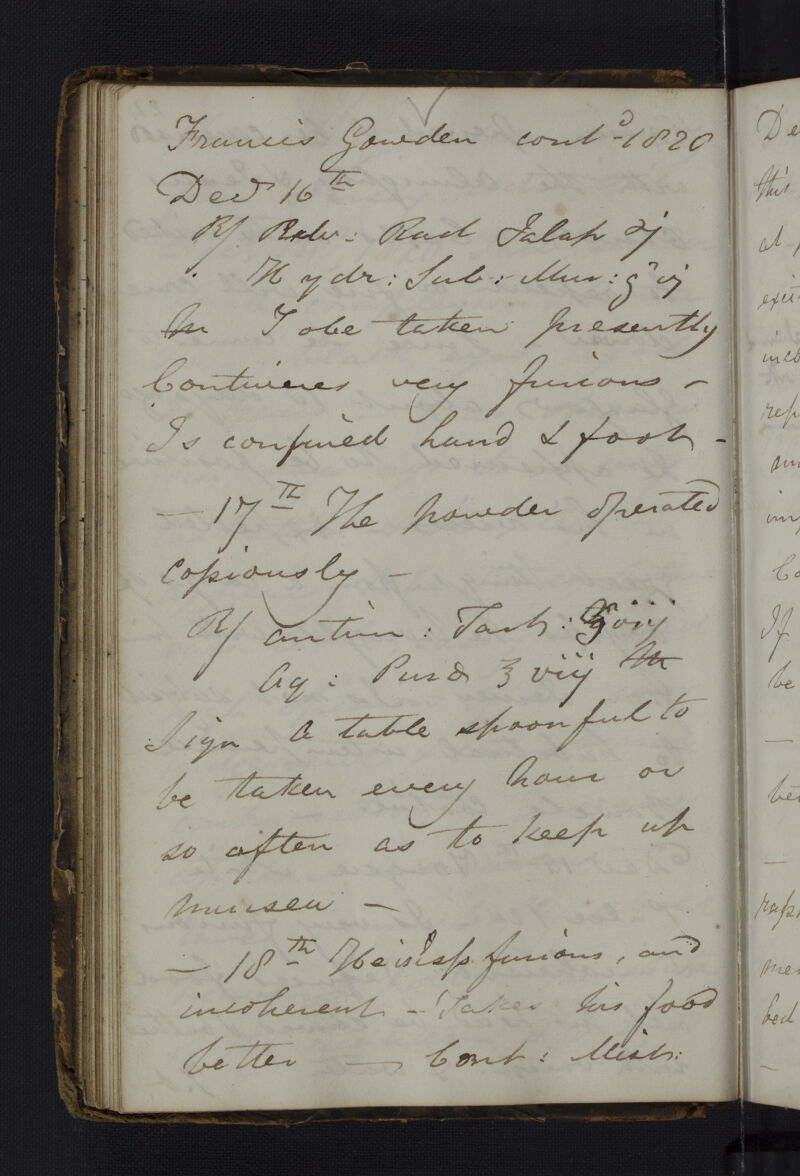 Francis Gowden contd 1820
Decr 16th
R/ Pulv: Rad Jalap ʒj
Hydr: Sub: Mur: gr vj
M To be taken presently
Continues very furious –
Is confined hand & foot –
– 17th The powder operated
copiously –
R/ antim: Tart: gr viij
Aq: Purd ℥ viij M
Sign A table spoonful to
be taken every hour or
so often as to keep up
nausea –
– 18th He is less furious, and
incoherent – Takes his food
better – Cont: Mist:
De
this
at
If
be
bed